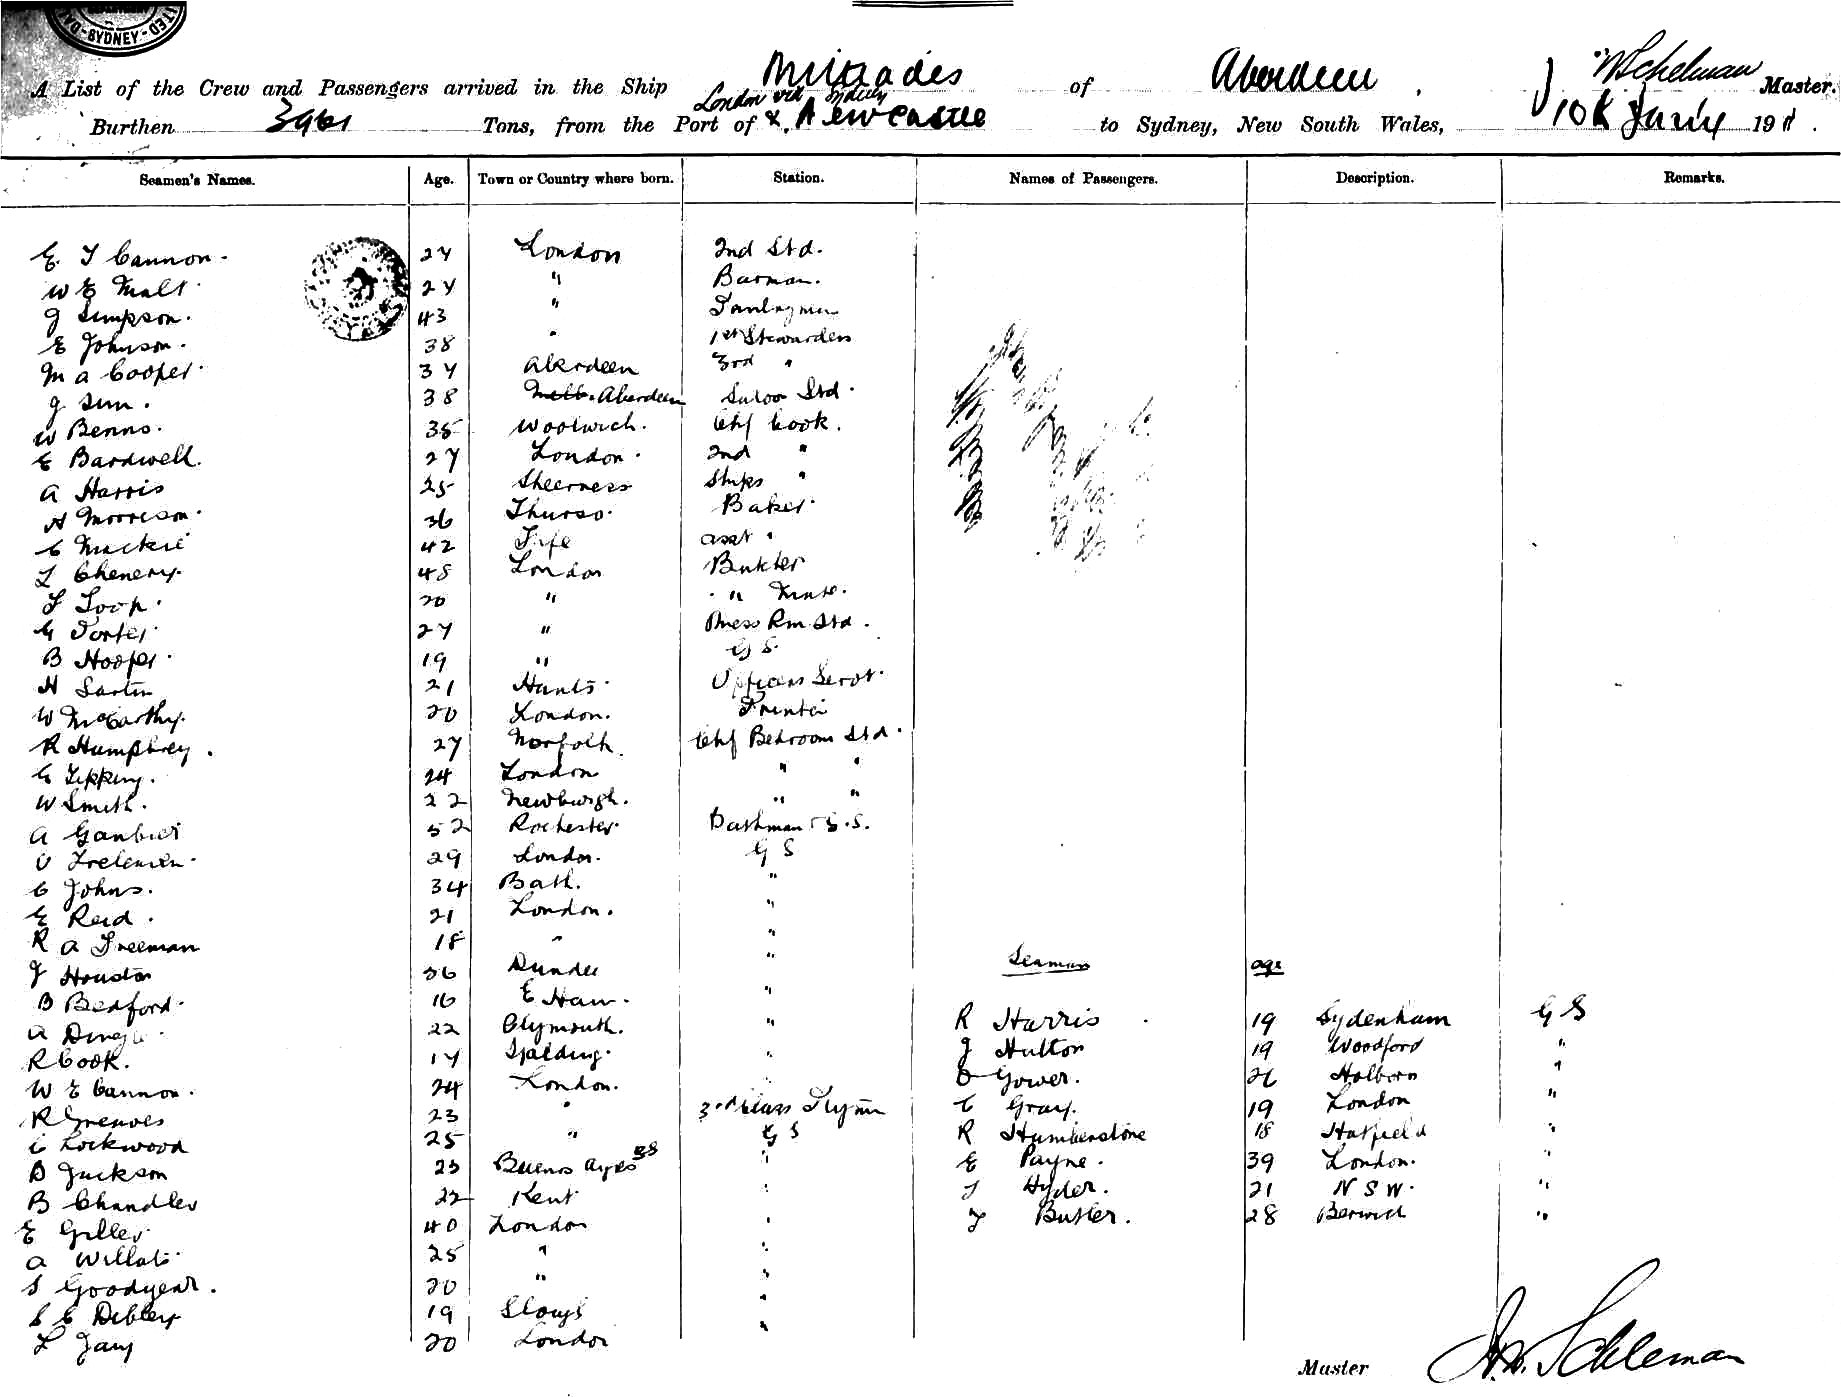 SYDNEY
A List of the Crew and Passengers arrived in the Ship Miltiades of Aberdeen, Master.
London via Sydney
Burthen 3961 Tons, from the Port of & Newcastle to Sydney, New South Wales, 10th Jany 1911.
Seamen's Names. Age. Town or Country where born. Station. Names of Passengers. Description. Remarks.
E T Cannon. 27 London 2nd Std.
W E Malt. 24 " Barman.
J Simpson. 43 " Pantryman
E Johnson. 38 " 1st Stewardess
M A Cooper. 34 Aberdeen 3rd "
J Sim. 38 Melb. Aberdeen Saloon Std.
W Benns. 35 Woolwich. Chf Cook.
E Bardwell. 27 London. 2nd "
A Harris 25 Sheerness Ships "
A Morrison. 36 Thurso. Baker.
C Mackie 42 Fife asst "
T Chenery. 48 London Butcher
F Loop. 20 " " Mate.
G Porter. 27 " Mess Rm Std.
B Hooper. 19 " G S.
H Sartin 21 Hants. Officers Servt.
W McCarthy. 20 London. Printer
R Humphrey. 27 Norfolk. Chf Bedroom Std.
G Tipping. 24 London " "
W Smith. 22 Newburgh. " "
A Gambier 52 Rochester. Bathman & G.S.
29 London. G S
C Johns. 34 Bath. "
E Reid. 21 London. "
R A Freeman 18 " "
J Houston 36 Dundee " Seamen age
B Bedford. 16 E Ham. "
A Dingle 22 Plymouth. " R Harris 19 Sydenham G S
R Cook. 17 Spalding. " J Hulton 19 Woodford "
W E Cannon. 24 London. " Gower. 26 Holborn "
R Greaves 23 " 3rd Class C Gray. 19 London "
C Lockwood 25 " G S R Humberstone 18 Hatfield "
B Jackson 23 Buenos Ayres BS " E Payne. 39 London. "
B Chandler 22 Kent " T Hyder. 21 N S W. "
E Gilles 40 London " F Butler. 28 Berwick "
A Willats 25 " "
S Goodyear. 20 " "
S C Dibley 19 Slough "
L Jary 20 London "
Master